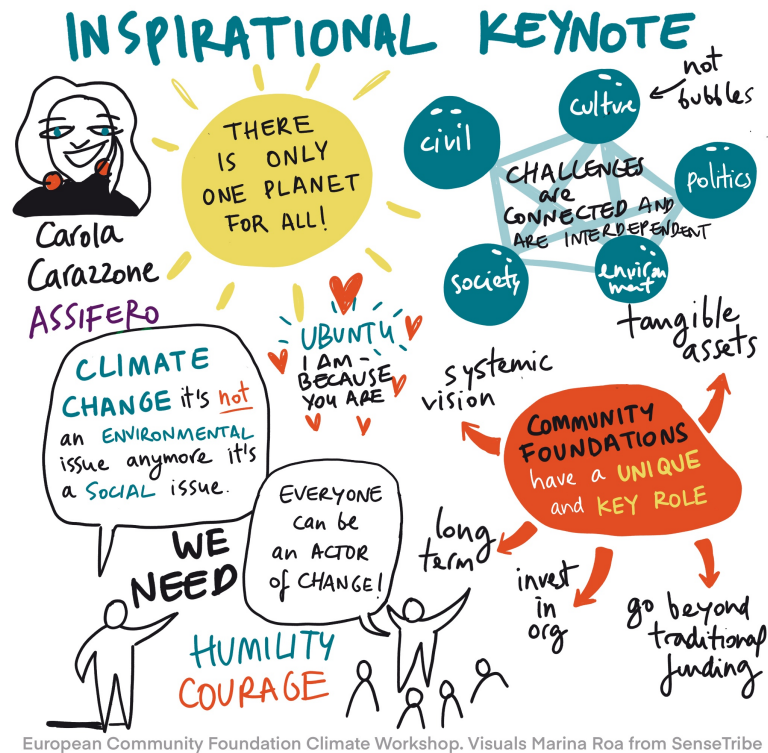 INSPIRATIONAL KEYNOTE
Carola
Carazzone
ASSIFERO
THERE
IS ONLY
ONE PLANET
FOR ALL!
civil
culture
not
bubbles
politics
CHALLENGES
are
CONNECTED AND
ARE INTERDEPENDENT
society
environ
ment
UBUNTU
I AM -
BECAUSE
YOU ARE
CLIMATE
CHANGE it's not
an ENVIRONMENTAL
issue anymore it's
a SOCIAL issue.
EVERYONE
can be
an ACTOR
of CHANGE!
WE
NEED
HUMILITY
COURAGE
COMMUNITY
FOUNDATIONS
have a UNIQUE
and KEY ROLE
systemic
vision
tangible
assets
long
term
invest
in
org
go beyond
traditional
funding
European Community Foundation Climate Workshop. Visuals Marina Roa from SenseTribe